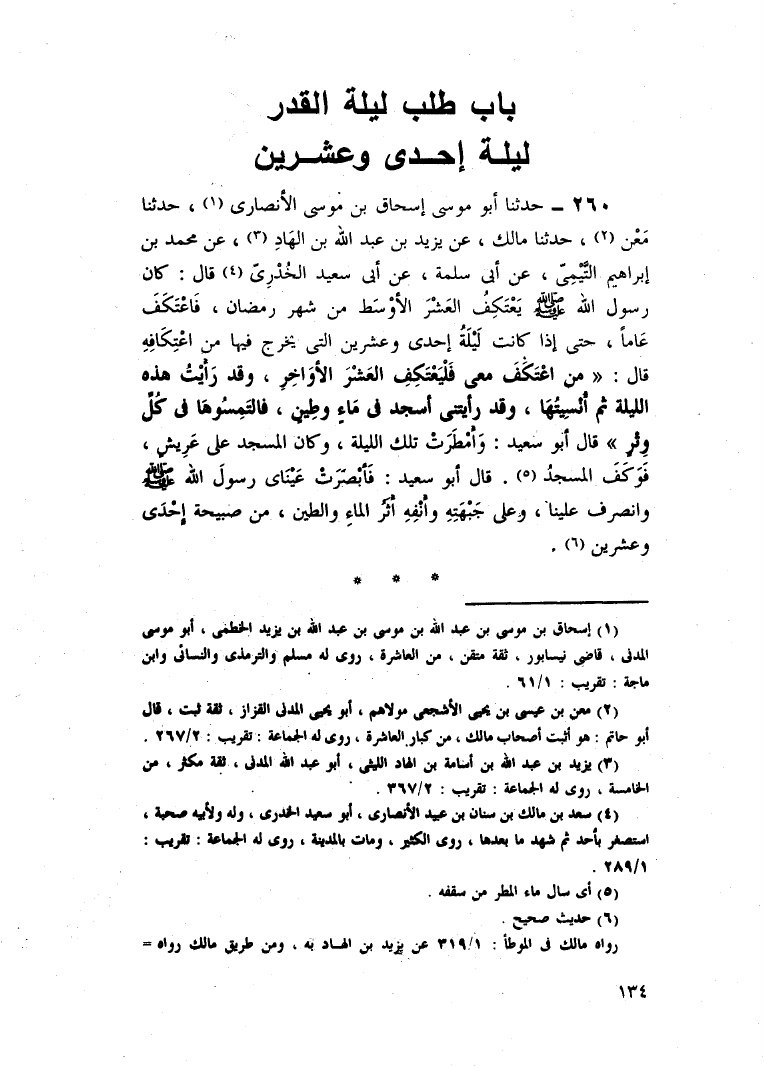 باب طلب ليلة القدر
ليلـة إحـدى وعشـرين
٢٦٠ ـ حدثنا أبو موسى إسحاق بن موسى الأنصارى (١) ، حدثنا
مَعْن (٢) ، حدثنا مالك ، عن يزيد بن عبد الله بن الهَادِ (٣) ، عن محمد بن
إبراهيم التَّيْمِىّ ، عن أبى سلمة ، عن أبى سعيد الخُدْرِىّ (٤) قال : كان
رسول الله ﷺ يَعْتَكِفُ العَشْرَ الأوْسَط من شهر رمضان ، فَاعْتَكَفَ
عَاماً ، حتى إذا كانت لَيْلَةُ إحدى وعشرين التى يخرج فيها من اعْتِكَافِهِ
قال : « من اعْتَكَفَ معى فَلْيَعْتَكِفِ العَشْرَ الأوَاخِرِ ، وقد رَأَيْتُ هذه
الليلة ثم أُنْسِيتُهَا ، وقد رأيتنى أسجد فى مَاءٍ وطِينٍ ، فالتَمِسُوهَا فى كُلِّ
وِتْرٍ » قال أبو سعيد : وَأَمْطَرَتْ تلك الليلة ، وكان المسجد على عَرِيشٍ ،
فَوَكَفَ المسجدُ (٥) . قال أبو سعيد : فَأَبْصَرَتْ عَيْنَاى رسولَ الله ﷺ
وانصرف علينا ، وعلى جَبْهَتِهِ وأَنْفِهِ أَثَرُ الماءِ والطين ، من صبيحة إِحْدَى
وعشرين (٦) .
* * *
(١) إسحاق بن موسى بن عبد الله بن موسى بن عبد الله بن يزيد الخطمى ، أبو موسى
المدنى ، قاضى نيسابور ، ثقة متقن ، من العاشرة ، روى له مسلم والترمذى والنسائى وابن
ماجة : تقريب : ٦١/١ .
(٢) معن بن عيسى بن يحيى الأشجعى مولاهم ، أبو يحيى المدنى القزاز ، ثقة ثبت ، قال
أبو حاتم : هو أثبت أصحاب مالك ، من كبار العاشرة ، روى له الجماعة : تقريب : ٢٦٧/٢ .
(٣) يزيد بن عبد الله بن أسامة بن الهاد الليثى ، أبو عبد الله المدنى ، ثقة مكثر ، من
الخامسة ، روى له الجماعة : تقريب : ٣٦٧/٢ .
(٤) سعد بن مالك بن سنان بن عبيد الأنصارى ، أبو سعيد الخدرى ، وله ولأبيه صحبة ،
استصغر بأحد ثم شهد ما بعدها ، روى الكثير ، ومات بالمدينة ، روى له الجماعة : تقريب :
٢٨٩/١ .
(٥) أى سال ماء المطر من سقفه .
(٦) حديث صحيح .
رواه مالك فى الموطأ : ٣١٩/١ عن يزيد بن الهـاد به ، ومن طريق مالك رواه =
١٣٤